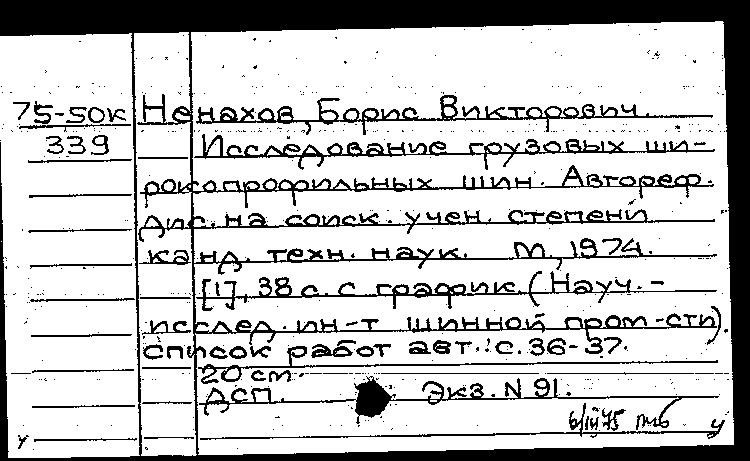 75-50к Ненахов, Борис Викторович.
339 Исследование грузовых ши-
рокопрофильных шин. Автореф.
дис. на соиск. учен. степени
канд. техн. наук. М., 1974.
[1], 38 с. с график. (Науч.-
исслед. ин-т шинной пром-сти).
Список работ авт.: с. 36-37.
20 см.
ДСП. Экз. N 91.
6/III 75
у у